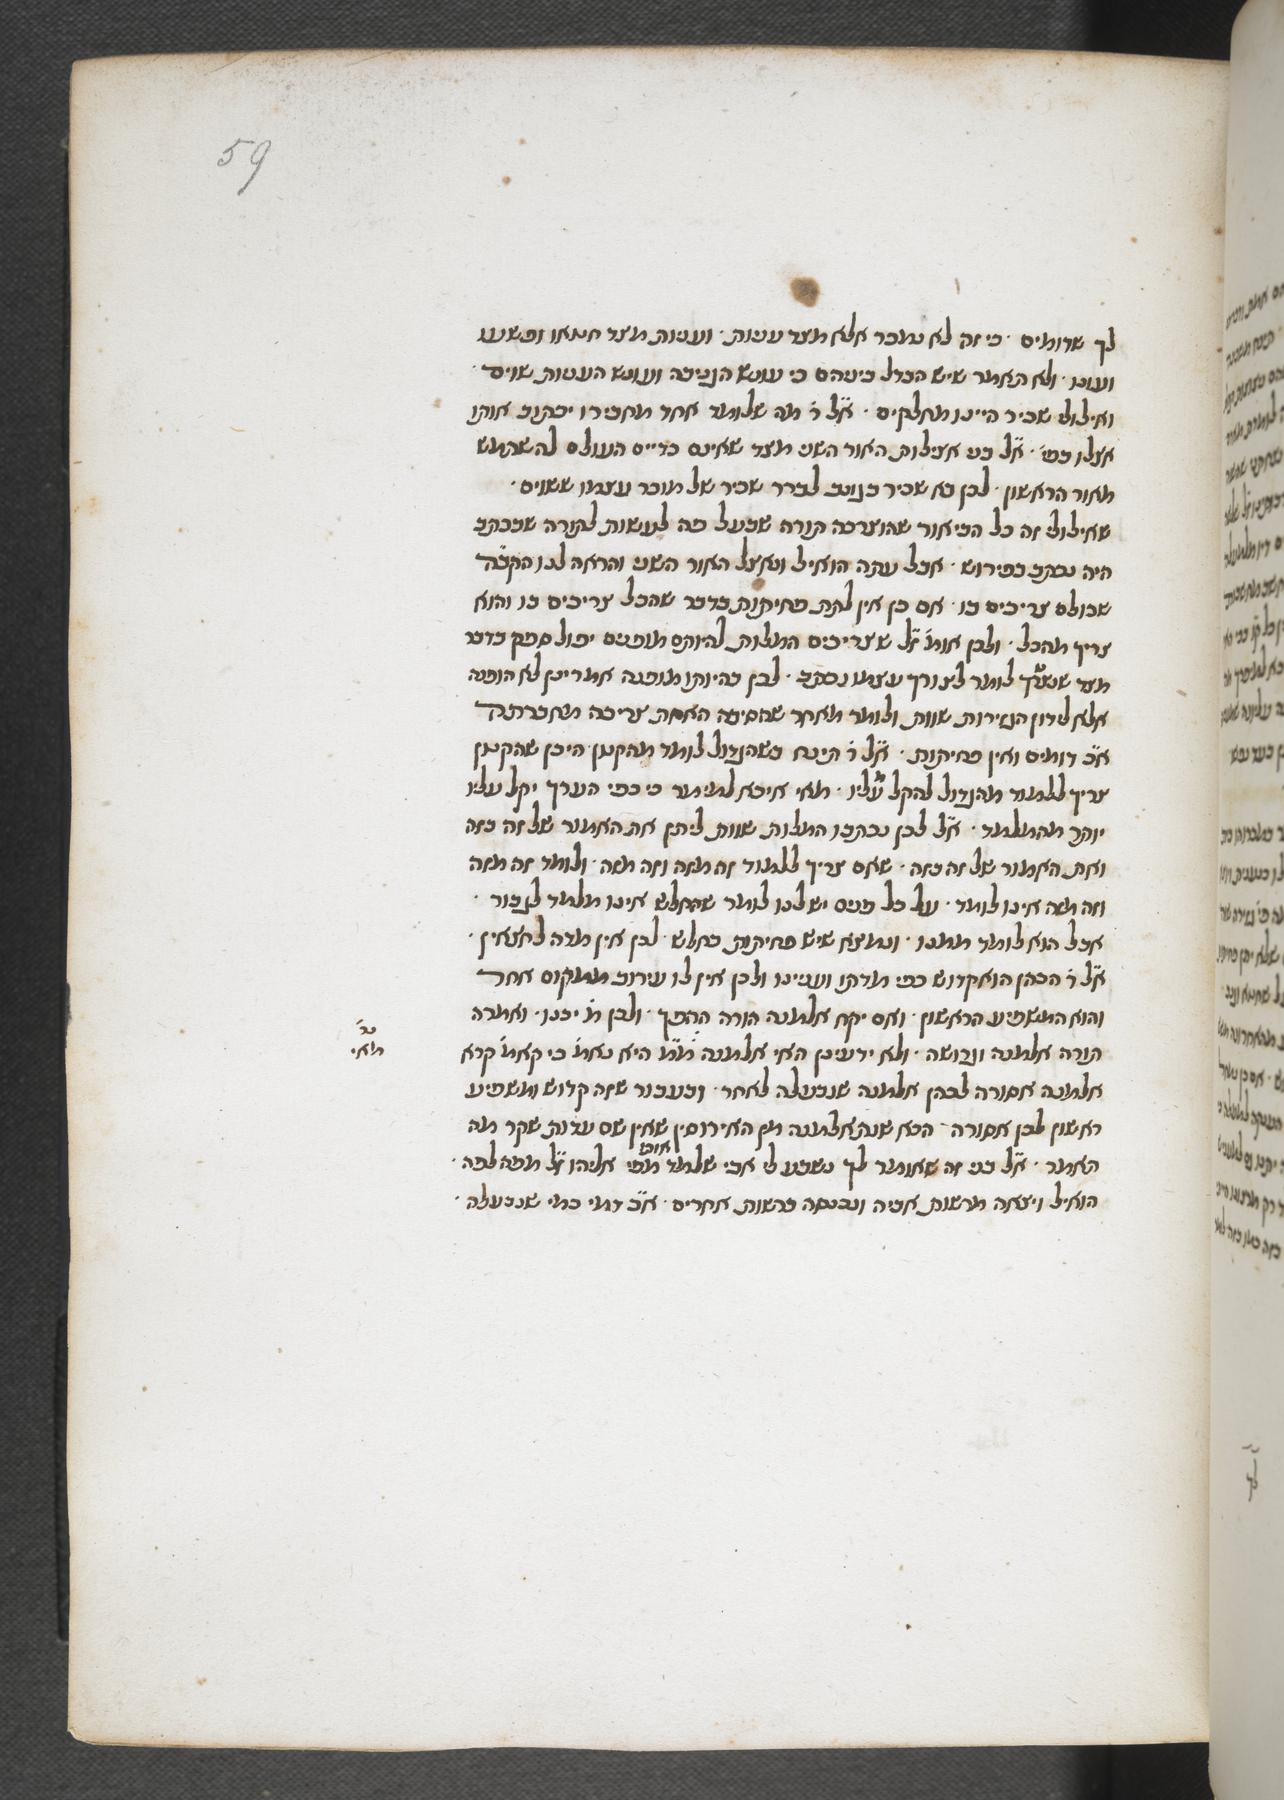 59
לך שדומים · כי זה לא נמכר אלא מצד עניות · ועניות מצד חטאו ופשעו
ועונו · ולא תאמר שיש הבדל ביניהם כי עונש הגניבה ועונש העניות שוים ·
ואילולי שכיר היינו מחלקים · א"ל ר' מה שלומד אחד מחבירו יכתוב אותו
אצלו · א"ל בני אצילות האור השני מצד שאינם כדיים העולם להשתמש
מאור הראשון · לכן בא שכיר בנוגב לברר שכיר של מוכר עצמו ששוים ·
שאילולי זה כל הביאור שהוצרכה תורה שבעל פה לעשות לתורה שבכתב
היה נכתב בפירוש · אבל עתה הואיל ונאצל האור השני והראה לנו הקב"ה
שכולם צריכים בו · אם כן אין לתת פחיתות בדבר שהכל צריכים בו והוא
צריך מהכל · ולכן אומ' ז"ל שצריכים המלות להיותם מופנים יפול ספק בדבר
מצד שנצרך לומר לצורך עצמו נכתב · לכן בהיותו מופנה אמרינן לא הופנה
אלא לידון הגזירות שוות ולומד מאחר שהסיבה האחת צריכה מחברתה
א"כ דומים ואין פחיתות · א"ל ר' תינח כשהגדול לומד מהקטן היכן שהקטן
צריך ללמוד מהגדול להקל עליו · מאי איכא למימר כי כפי הערך יקל עליו
יותר מהמלמד · א"ל לכן נכתבו המלות שוות ליתן את האמור של זה בזה
ואת האמור של זה בזה · שאם צריך ללמוד זה מזה וזה מזה · ולומד זה מזה
וזה מזה אינו לומד · על כל פנים יש לנו לומר שהחלש אינו מלמד לגבור ·
אבל הוא לומד ממנו · ונמצא שיש פחיתות בחלש · לכן אין מדה לחצאין ·
א"ל ר' הכהן הוא קדוש כפי מדתו ועניינו ולכן אין לו עירוב ממקום אחר
והוא המשפיע הראשון · ואם יקח אלמנה הורה ההפך · ולכן יכנו · ואמרה
תורה אלמנה וגרושה · ולא ידעינן האי אלמנה היא כי קאמ' קרא
אלמנה אסורה לכהן אלמנה שנבעלה לאחר · ובעבור שזה קדוש ומשפיע
ראשון לכן אסורה · הבא שנתאלמנה מן האירוסין שאין שם עדות שקר מה
תאמר · א"ל בני זה שאומר לך נשבע לי אבי שלמד מפי אליהו ז"ל מפה לפה ·
הואיל ויצאה מרשות אביה ונכנסה ברשות אחרים · א"כ דמי כמי שנבעלה ·